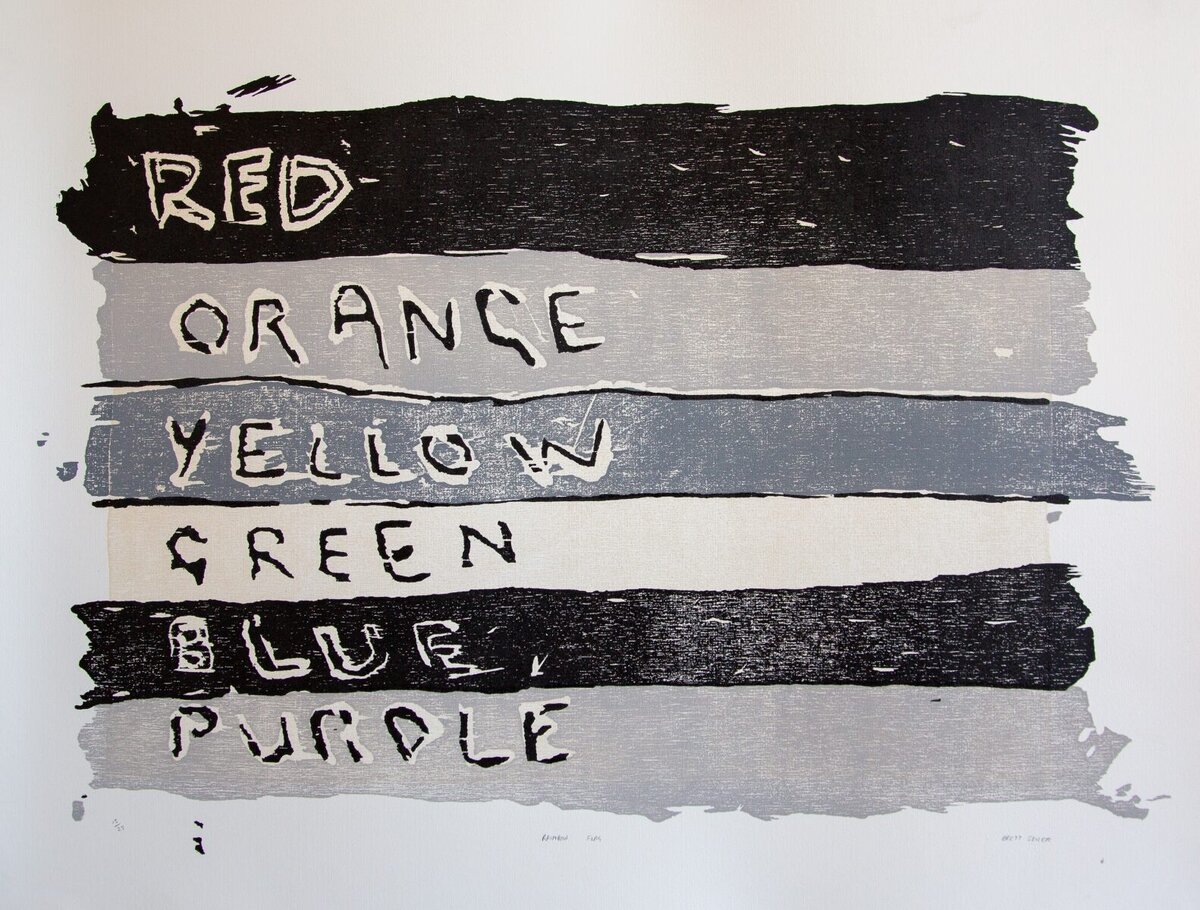 RED
ORANGE
YELLOW
GREEN
BLUE
PURPLE
RAINBOW FLAG